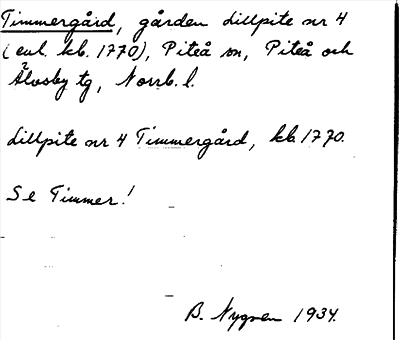 Timmergård, gården Lillpite nr 4
(enl. kb. 1770), Piteå sn, Piteå och
Älvsby tg, Norrb. l.
Lillpite nr 4 Timmergård, kb. 1770.
Se Timmer!
B. Nygren 1934.